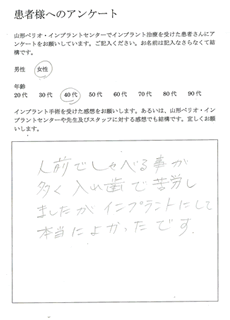 患者様へのアンケート
山形ペリオ・インプラントセンターでインプラント治療を受けた患者さんにア
ンケートをお願いしています。ご記入ください。お名前は記入なさらなくて結
構です。
男性 女性
年齢
20代 30代 40代 50代 60代 70代 80代 90代
インプラント手術を受けた感想をお願いします。あるいは、山形ペリオ・イン
プラントセンターや先生及びスタッフに対する感想でも結構です。宜しくお願
いします。
人前でしゃべる事が
多く入れ歯で苦労し
ましたがインプラントにして
本当によかったです。